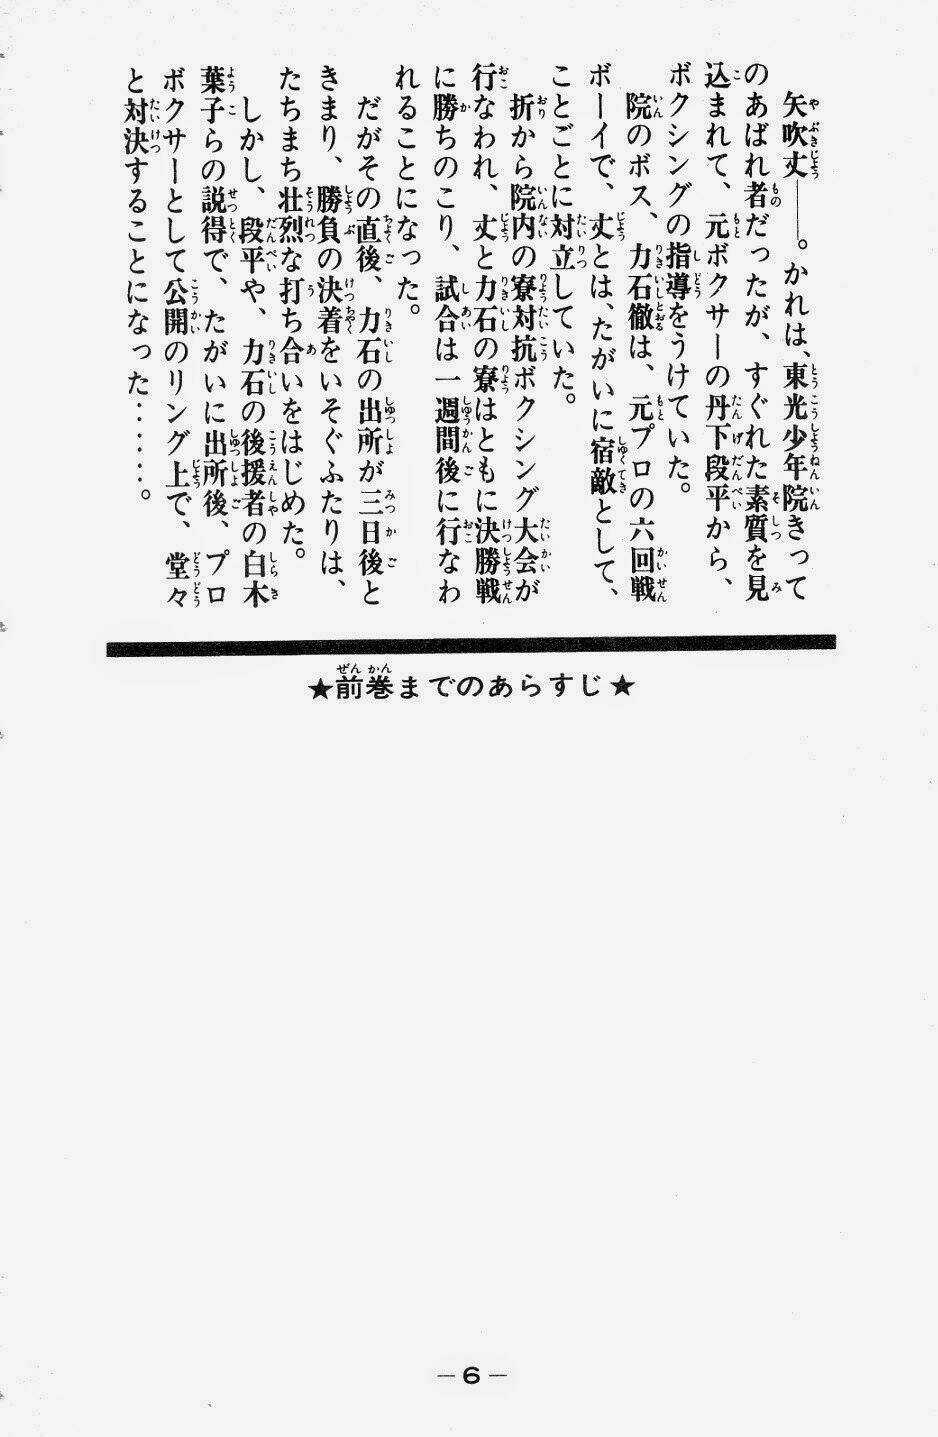 矢吹丈――。かれは、東光少年院きって
のあばれ者だったが、すぐれた素質を見
込まれて、元ボクサーの丹下段平から、
ボクシングの指導をうけていた。
院のボス、力石徹は、元プロの六回戦
ボーイで、丈とは、たがいに宿敵として、
ことごとに対立していた。
折から院内の寮対抗ボクシング大会が
行なわれ、丈と力石の寮はともに決勝戦
に勝ちのこり、試合は一週間後に行なわ
れることになった。
だがその直後、力石の出所が三日後と
きまり、勝負の決着をいそぐふたりは、
たちまち壮烈な打ち合いをはじめた。
しかし、段平や、力石の後援者の白木
葉子らの説得で、たがいに出所後、プロ
ボクサーとして公開のリング上で、堂々
と対決することになった……。
★前巻までのあらすじ★
—6—